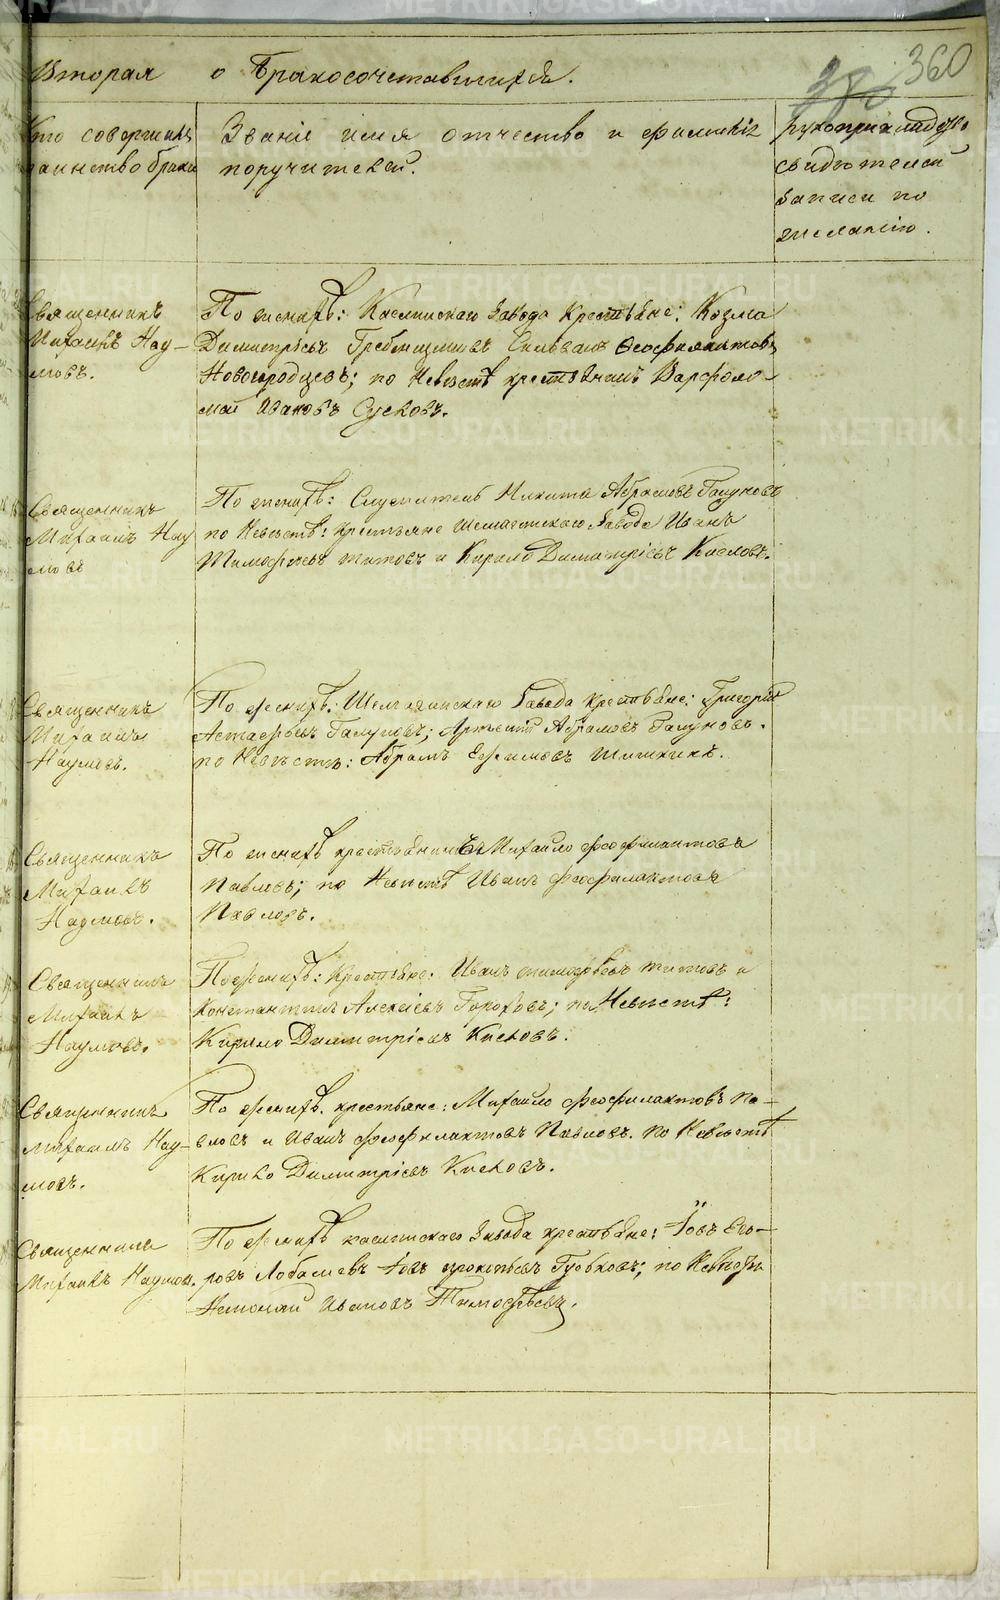 360
Вторая о бракосочетавшихся.
Кто совершилъ
таинство брака
Званіе имя отчество и фамилія
поручителей.
рукоприкладство
свидѣтелей
записи по
желанію.
Священникъ
Михаилъ Нау-
мовъ.
По женихѣ: Каслинскаго завода крестьяне: Козма
Димитріевъ Гребенщиковъ Сильванъ Ѳеофилактовъ
Новогородцевъ; по невѣстѣ крестьянинъ Варфоло-
мей Ивановъ Сусловъ.
Священникъ
Михаилъ Нау
мовъ
По женихѣ: Служитель Никита Абрамовъ Галуновъ
по невѣстѣ: крестьяне Шемахинскаго Завода Иванъ
Тимофѣевъ Титовъ и Кирило Димитріевъ Кисловъ.
Священникъ
Михаилъ
Наумовъ.
По женихѣ: Шемахинскаго Завода крестьяне: Григорій
Астафьевъ Галуновъ; Артемій Абрамовъ Галуновъ.
по невѣстѣ: Абрамъ Ефимовъ Шишкинъ.
Священникъ
Михаилъ
Наумовъ.
По женихѣ крестьянинъ Михайло Феофилактовъ
Павловъ; по невѣстѣ Иванъ Феофилактовъ
Павловъ.
Священникъ
Михаилъ
Наумовъ.
По женихѣ: крестьяне: Иванъ Тимофѣевъ Титовъ и
Константинъ Алексѣевъ Гороховъ; по невѣстѣ:
Кирило Димитріевъ Кисловъ.
Священникъ
Михаилъ Нау-
мовъ.
По женихѣ. крестьяне: Михайло Феофилактовъ Па-
вловъ и Иванъ Феофилактовъ Павловъ. по невѣстѣ
Кирило Димитріевъ Кисловъ.
Священникъ
Михаилъ Наумовъ.
По женихѣ каслинскаго Завода крестьяне: Іовъ Его-
ровъ Лобашевъ Іовъ Губковъ; по невѣстѣ
Ивановъ Тимофѣевъ.
METRIKI.GASO-URAL.RU